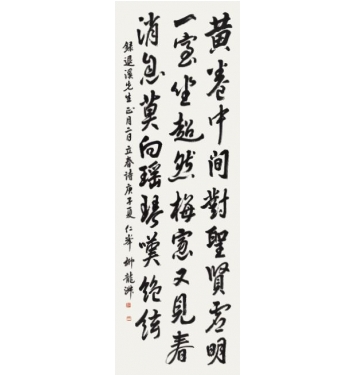 黃卷中間對聖賢虛明
一室坐超然梅窓又見春
消息莫向瑤琴嘆絶絃
錄退溪先生正月二日立春詩庚子夏仁峯柳龍淵